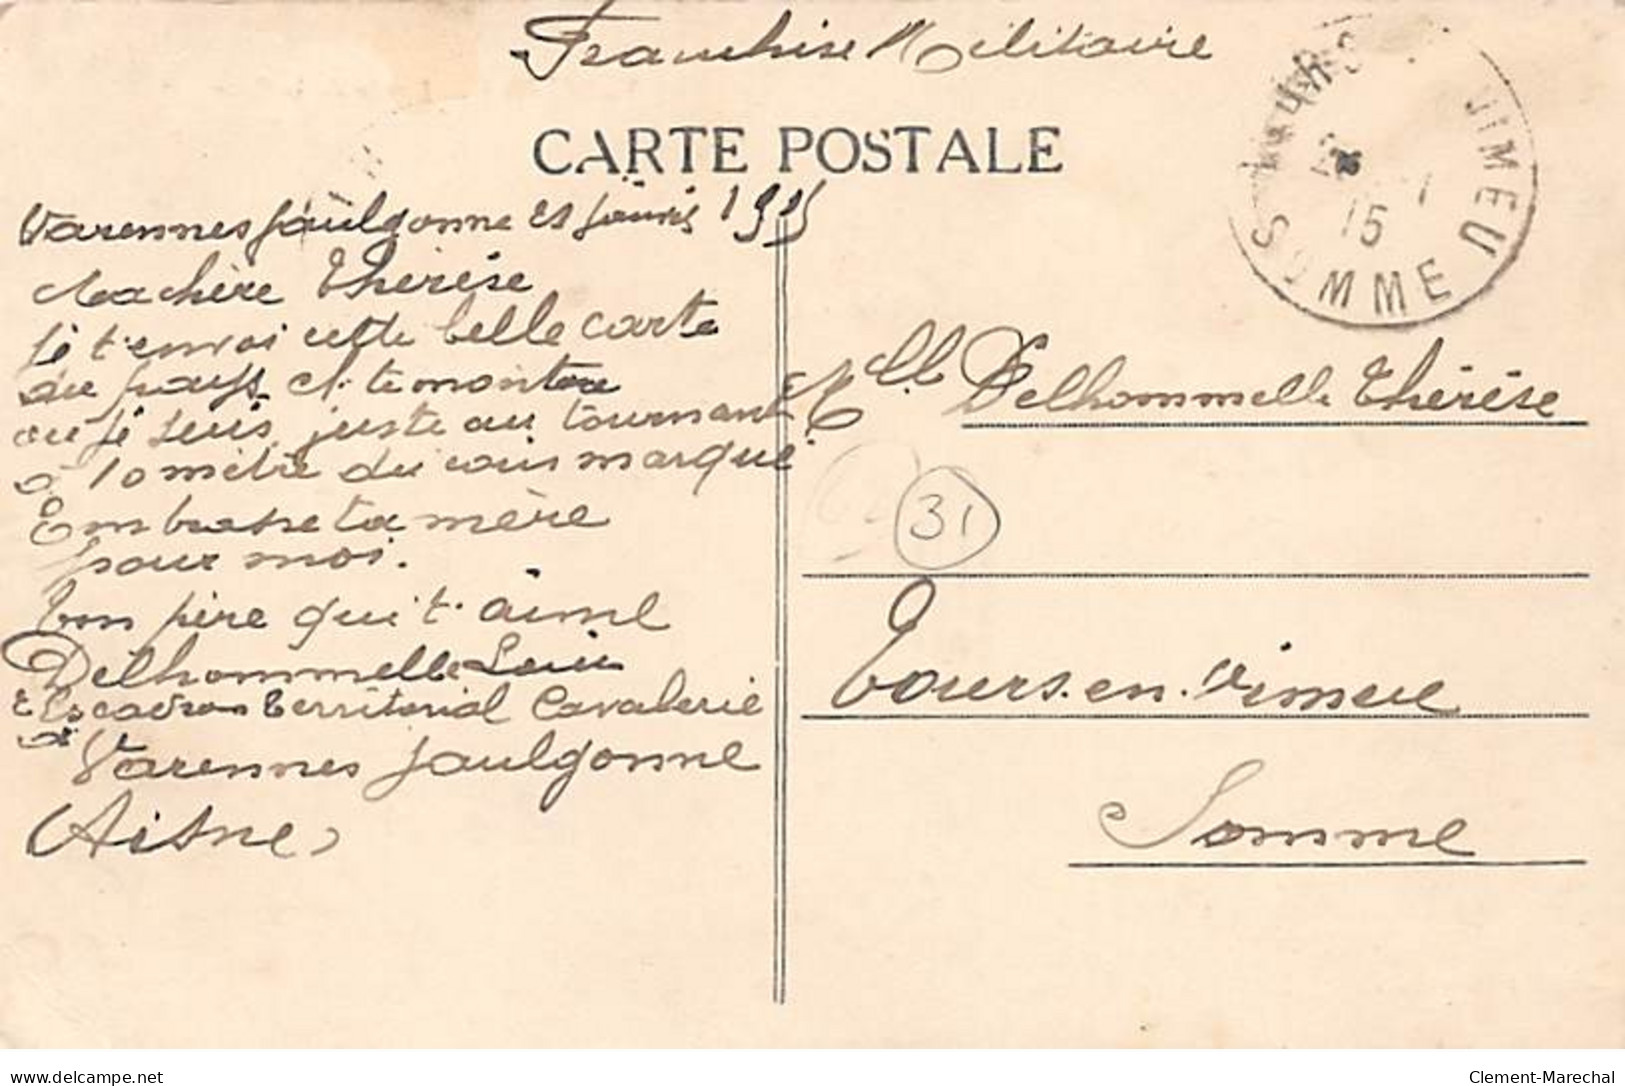 Franchise Militaire
CARTE POSTALE
Varennes Jaulgonne 21 1915
Ma chère Thérèse
Je t'envoi cette belle carte
du pays et te montre
ou je suis juste au tournant
a 10 mètre du coin marqué
Embrasse ta mère
pour moi.
Ton père qui t'aime
Delhommelle
Escadron territorial Cavalerie
a Varennes Jaulgonne
(Aisne)
VIMEU
15
SOMME
Melle Delhommelle Thérèse
31
Tours-en-Vimeu
Somme
Clement-Marechal